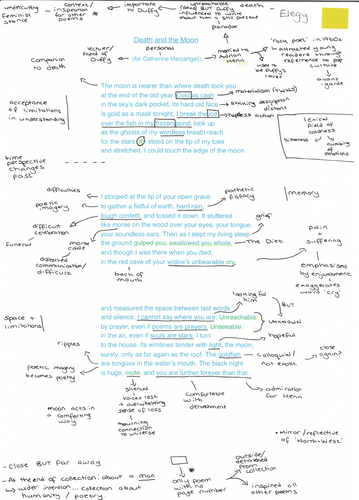 undercutting feminist stance
content/inspiration for other poems
important to Duffy
unreachable (dead) BUT Duffy influenced to write about him & still present
death
Elegy
paradox
Death and the Moon
personal
(for Catherine Marcangeli)
widow/friend of Duffy
married to Adrian Henri
used to be Duffy's lover
'rock poet' in 1960s
attracted young readers through references to pop culture
avant garde
comparison to death
The moon is nearer than where death took you
at the end of the old year. Cold as cash
in the sky's dark pocket, its hard old face
is gold as a mask tonight. I break the ice
over the fish in my frozen pond, look up
as the ghosts of my wordless breath reach
for the stars. If I stood on the tip of my toes
and stretched, I could touch the edge of the moon.
materialism
shining description
distant
hopeless action
lexical field of coldness
bitterness
numbing of emotions
acceptance of limitations in understanding
time perspective changes
past
I stooped at the lip of your open grave
to gather a fistful of earth, hard rain,
tough confetti, and tossed it down. It stuttered
like morse on the wood over your eyes, your tongue,
your soundless ears. Then as I slept my living sleep
the ground gulped you, swallowed you whole,
and though I was there when you died,
in the red cave of your widow's unbearable cry,
difficulties
poetic imagery
difficult celebration
funeral
morse code
distorted communication/difficult
back of mouth
pathetic fallacy
memory
grief
pain
suffering
The Diet
emphasised by enjambment
exaggerates word 'cry'
and measured the space between last words
and silence, I cannot say where you are. Unreachable
by prayer, even if poems are prayers. Unseeable
in the air, even if souls are stars. I turn
to the house, its windows tender with light, the moon,
surely, only as far again as the roof. The goldfish
are tongues in the water's mouth. The black night
is huge, mute, and you are further forever than that.
looking for him
BUT
unknown
hopeful
space + limitations
ripples
poetic imagery
becomes poetry
moon acts in a comforting way
colloquial/not exotic
close again?
silenced
voices lost + overwhelming sense of loss
mourning connection to universe
comfortable with detachment
admiration for Henri
- Close BUT far away
- At the end of collection: about a man
→ wider intention... collection about humanity / poetry.
only poem with no page number
outside/detached from collection
inspired all other poems
• mirror/reflective of 'North-West'